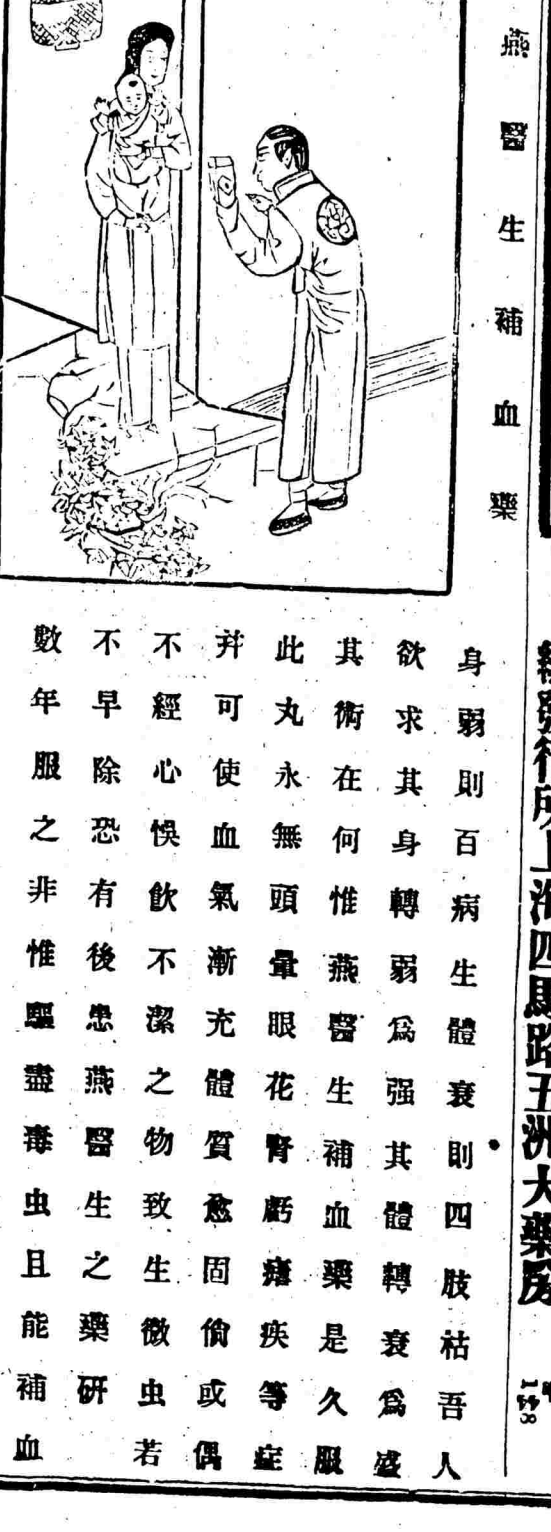 發行所上海四馬路五洲大藥房
燕醫生補血藥
身弱則百病生體衰則四肢枯吾人
欲求其身轉弱為强其體轉衰為盛
其術在何惟燕醫生補血藥是久服
此丸永無頭暈眼花腎虧瘧疾等症
并可使血氣漸充體質愈固倘或偶
不經心悞飲不潔之物致生微虫若
不早除恐有後患燕醫生之藥研
數年服之非惟驅盡毒虫且能補血